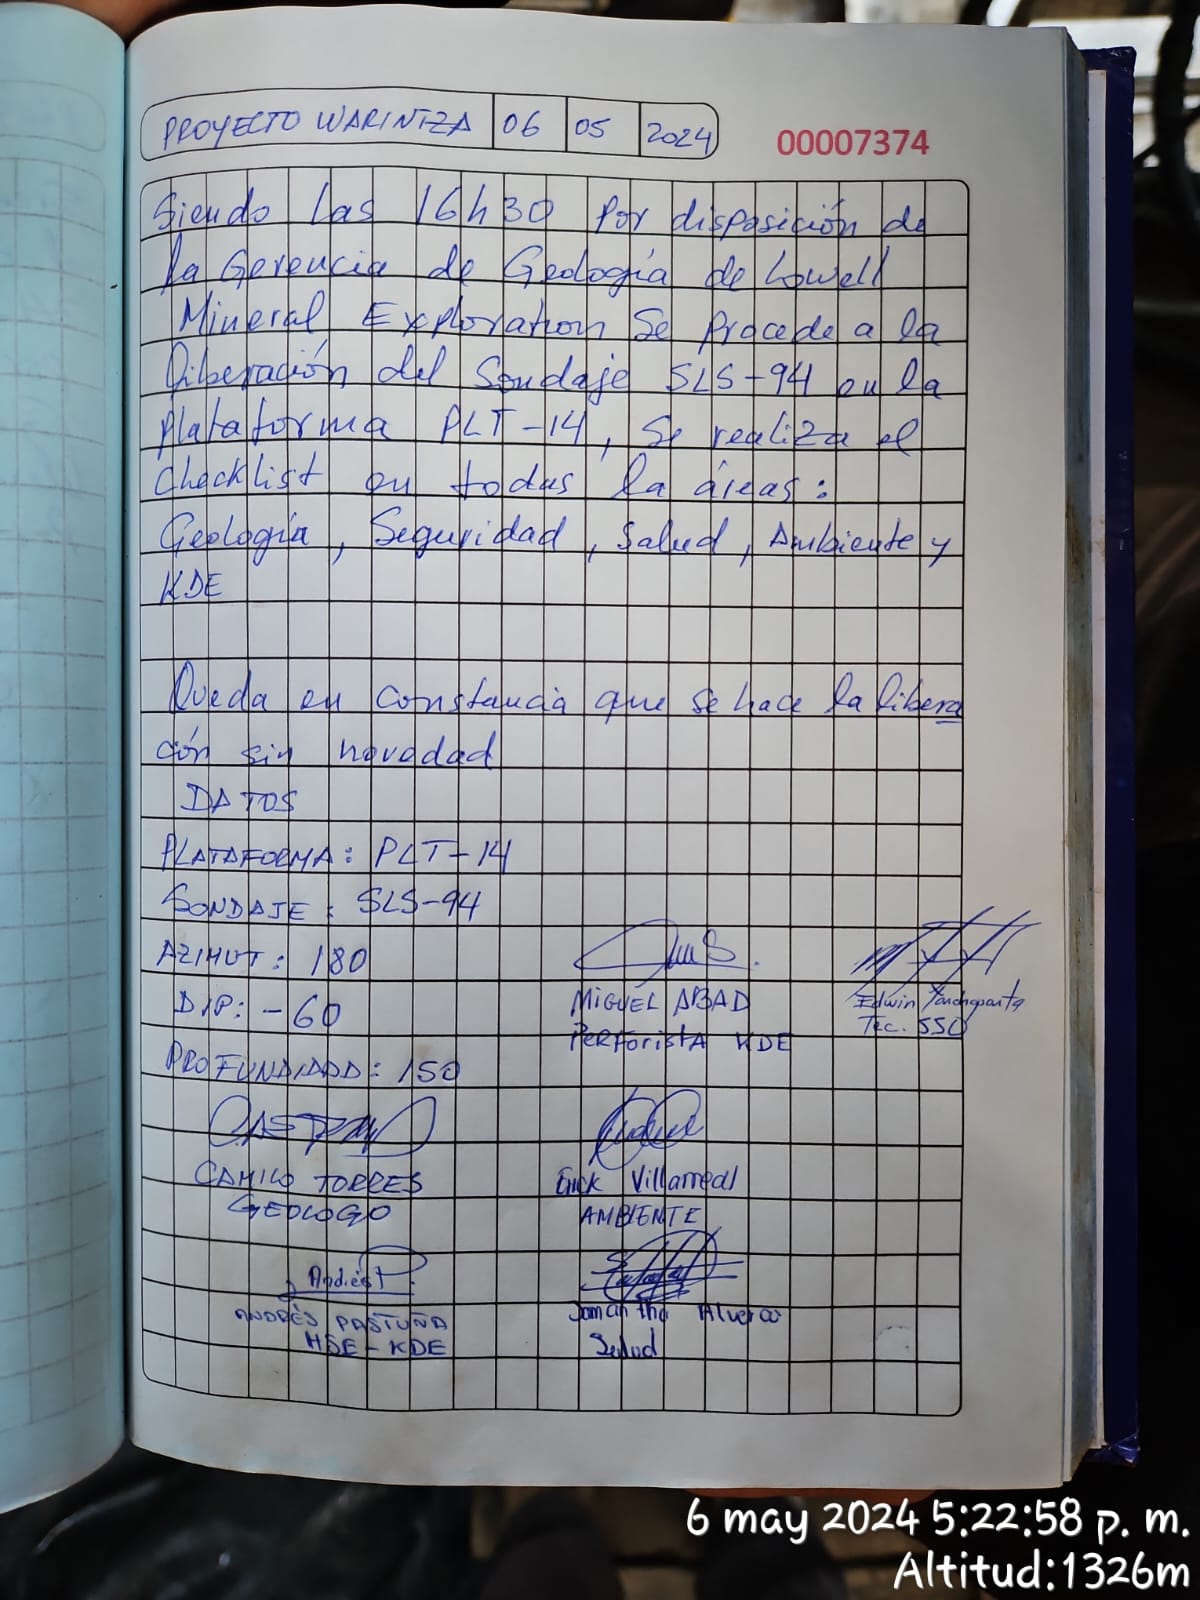 PROYECTO WARINTZA 06 05 2024
00007374
Siendo las 16h30 por disposición de
la Gerencia de Geología de Lowell
Mineral Exploration se procede a la
liberación del Sondaje SLS-94 en la
plataforma PLT-14, se realiza el
checklist en todas la áreas:
Geología, Seguridad, Salud, Ambiente y
KDE
Queda en constancia que se hace la libera
ción sin novedad
DATOS
PLATAFORMA: PLT-14
SONDAJE: SLS-94
AZIMUT: 180
DIP: -60
PROFUNDIDAD: 150
MIGUEL ABAD
PERForistA KDE
Edwin
Tec. SSO
CAMILO TORRES
GEOLOGO
Erick Villarreal
AMBIENTE
ANDRÉS PASTUÑA
HSE-KDE
Samantha
Salud
6 may 2024 5:22:58 p. m.
Altitud:1326m